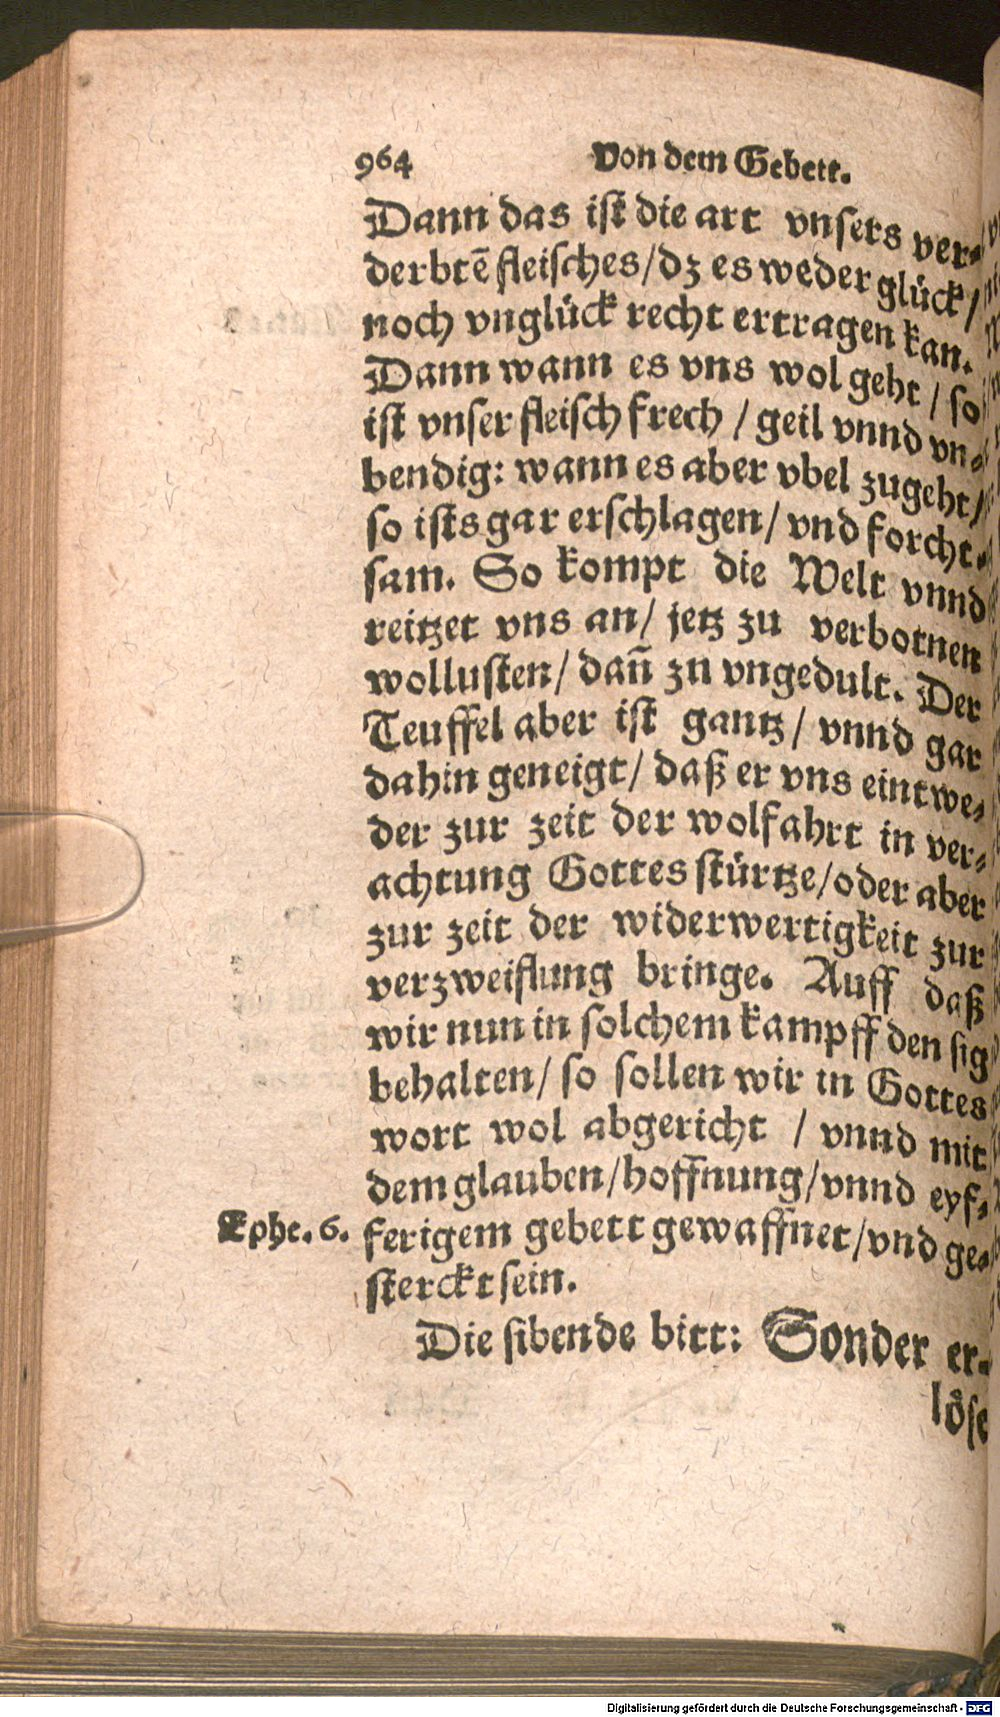 964 Von dem Gebett.
Dann das ist die art vnsers ver-
derbtē fleisches/dz es weder glück/
noch vnglück recht ertragen kan.
Dann wann es vns wol geht/ so
ist vnser fleisch frech / geil vnnd vn-
bendig: wann es aber vbel zugeht/
so ists gar erschlagen/ vnd forcht-
sam. So kompt die Welt vnnd
reitzet vns an/ jetz zu verbotnen
wollusten/ dañ zu vngedult. Der
Teuffel aber ist gantz/ vnnd gar
dahin geneigt/ daß er vns eintwe-
der zur zeit der wolfahrt in ver-
achtung Gottes stürtze/oder aber
zur zeit der widerwertigkeit zur
verzweiflung bringe. Auff daß
wir nun in solchem kampff den sig
behalten/ so sollen wir in Gottes
wort wol abgericht / vnnd mit
dem glauben/hoffnung/vnnd eyf-
Ephe. 6. ferigem gebett gewaffnet/vnd ge-
sterckt sein.
Die sibende bitt: Sonder er-
löse
Digitalisierung gefördert durch die Deutsche Forschungsgemeinschaft - DFG